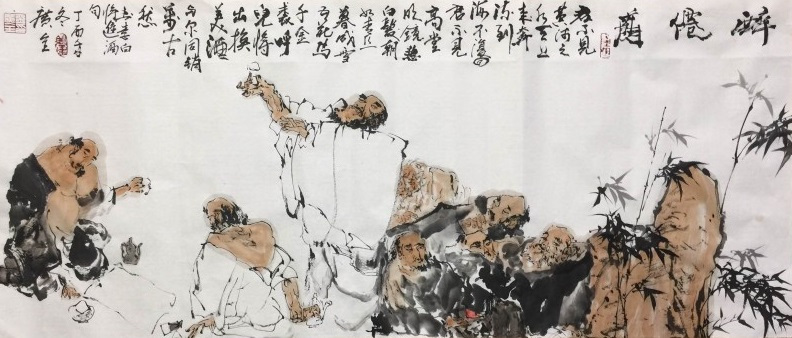 醉僊
君不見
黃河之
水天上
來奔
流到
海不復回
君不見
高堂
明鏡悲
白髮朝
如青絲
暮成雪
五花馬
千金
裘呼
兒將
出換
美酒
與爾同銷
萬古
愁
李太白
將進酒
句
丁酉年
冬